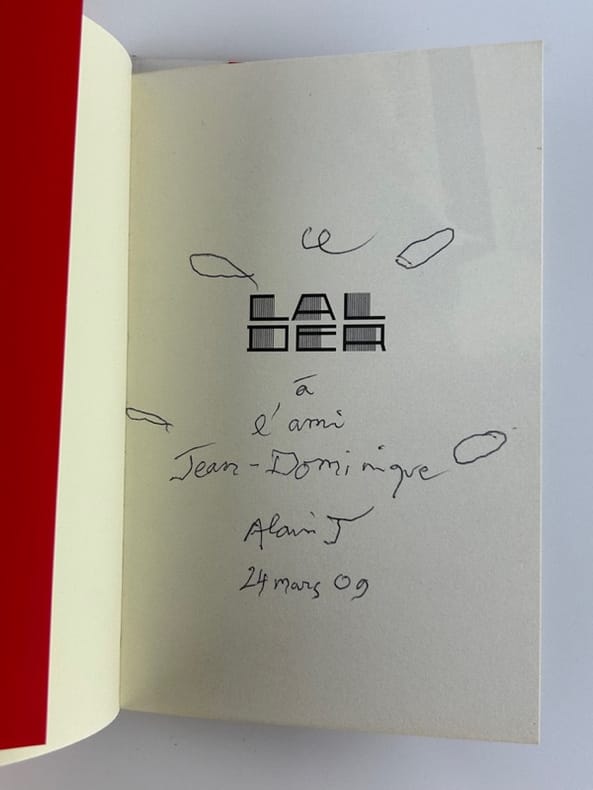 ce
CAL
DER
à
l'ami
Jean-Dominique
Alain J
24 mars 09